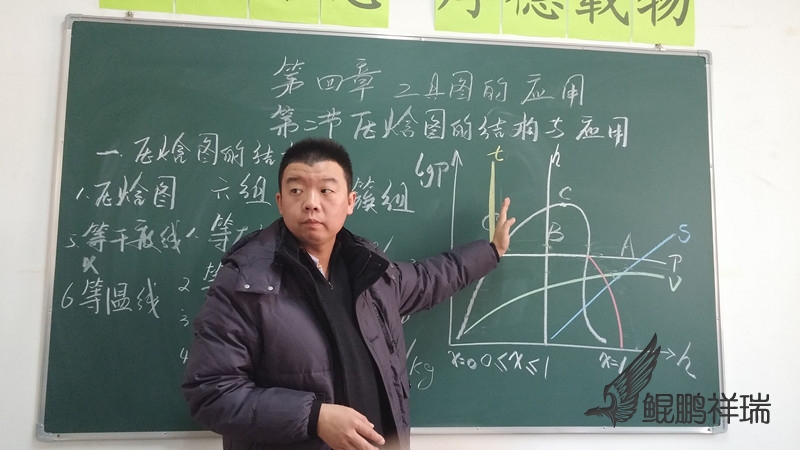 德载物
第四章 工具图的应用
第二节 压焓图的结构与应用
一.压焓图的结
1.压焓图 六组 簇组
5.等干度线 1.等
x
6等温线 2 等
3
4
kg
lgp
t
h
C
B
A
S
P
V
x=0 0≤x≤1 x=1 h
鲲鹏祥瑞